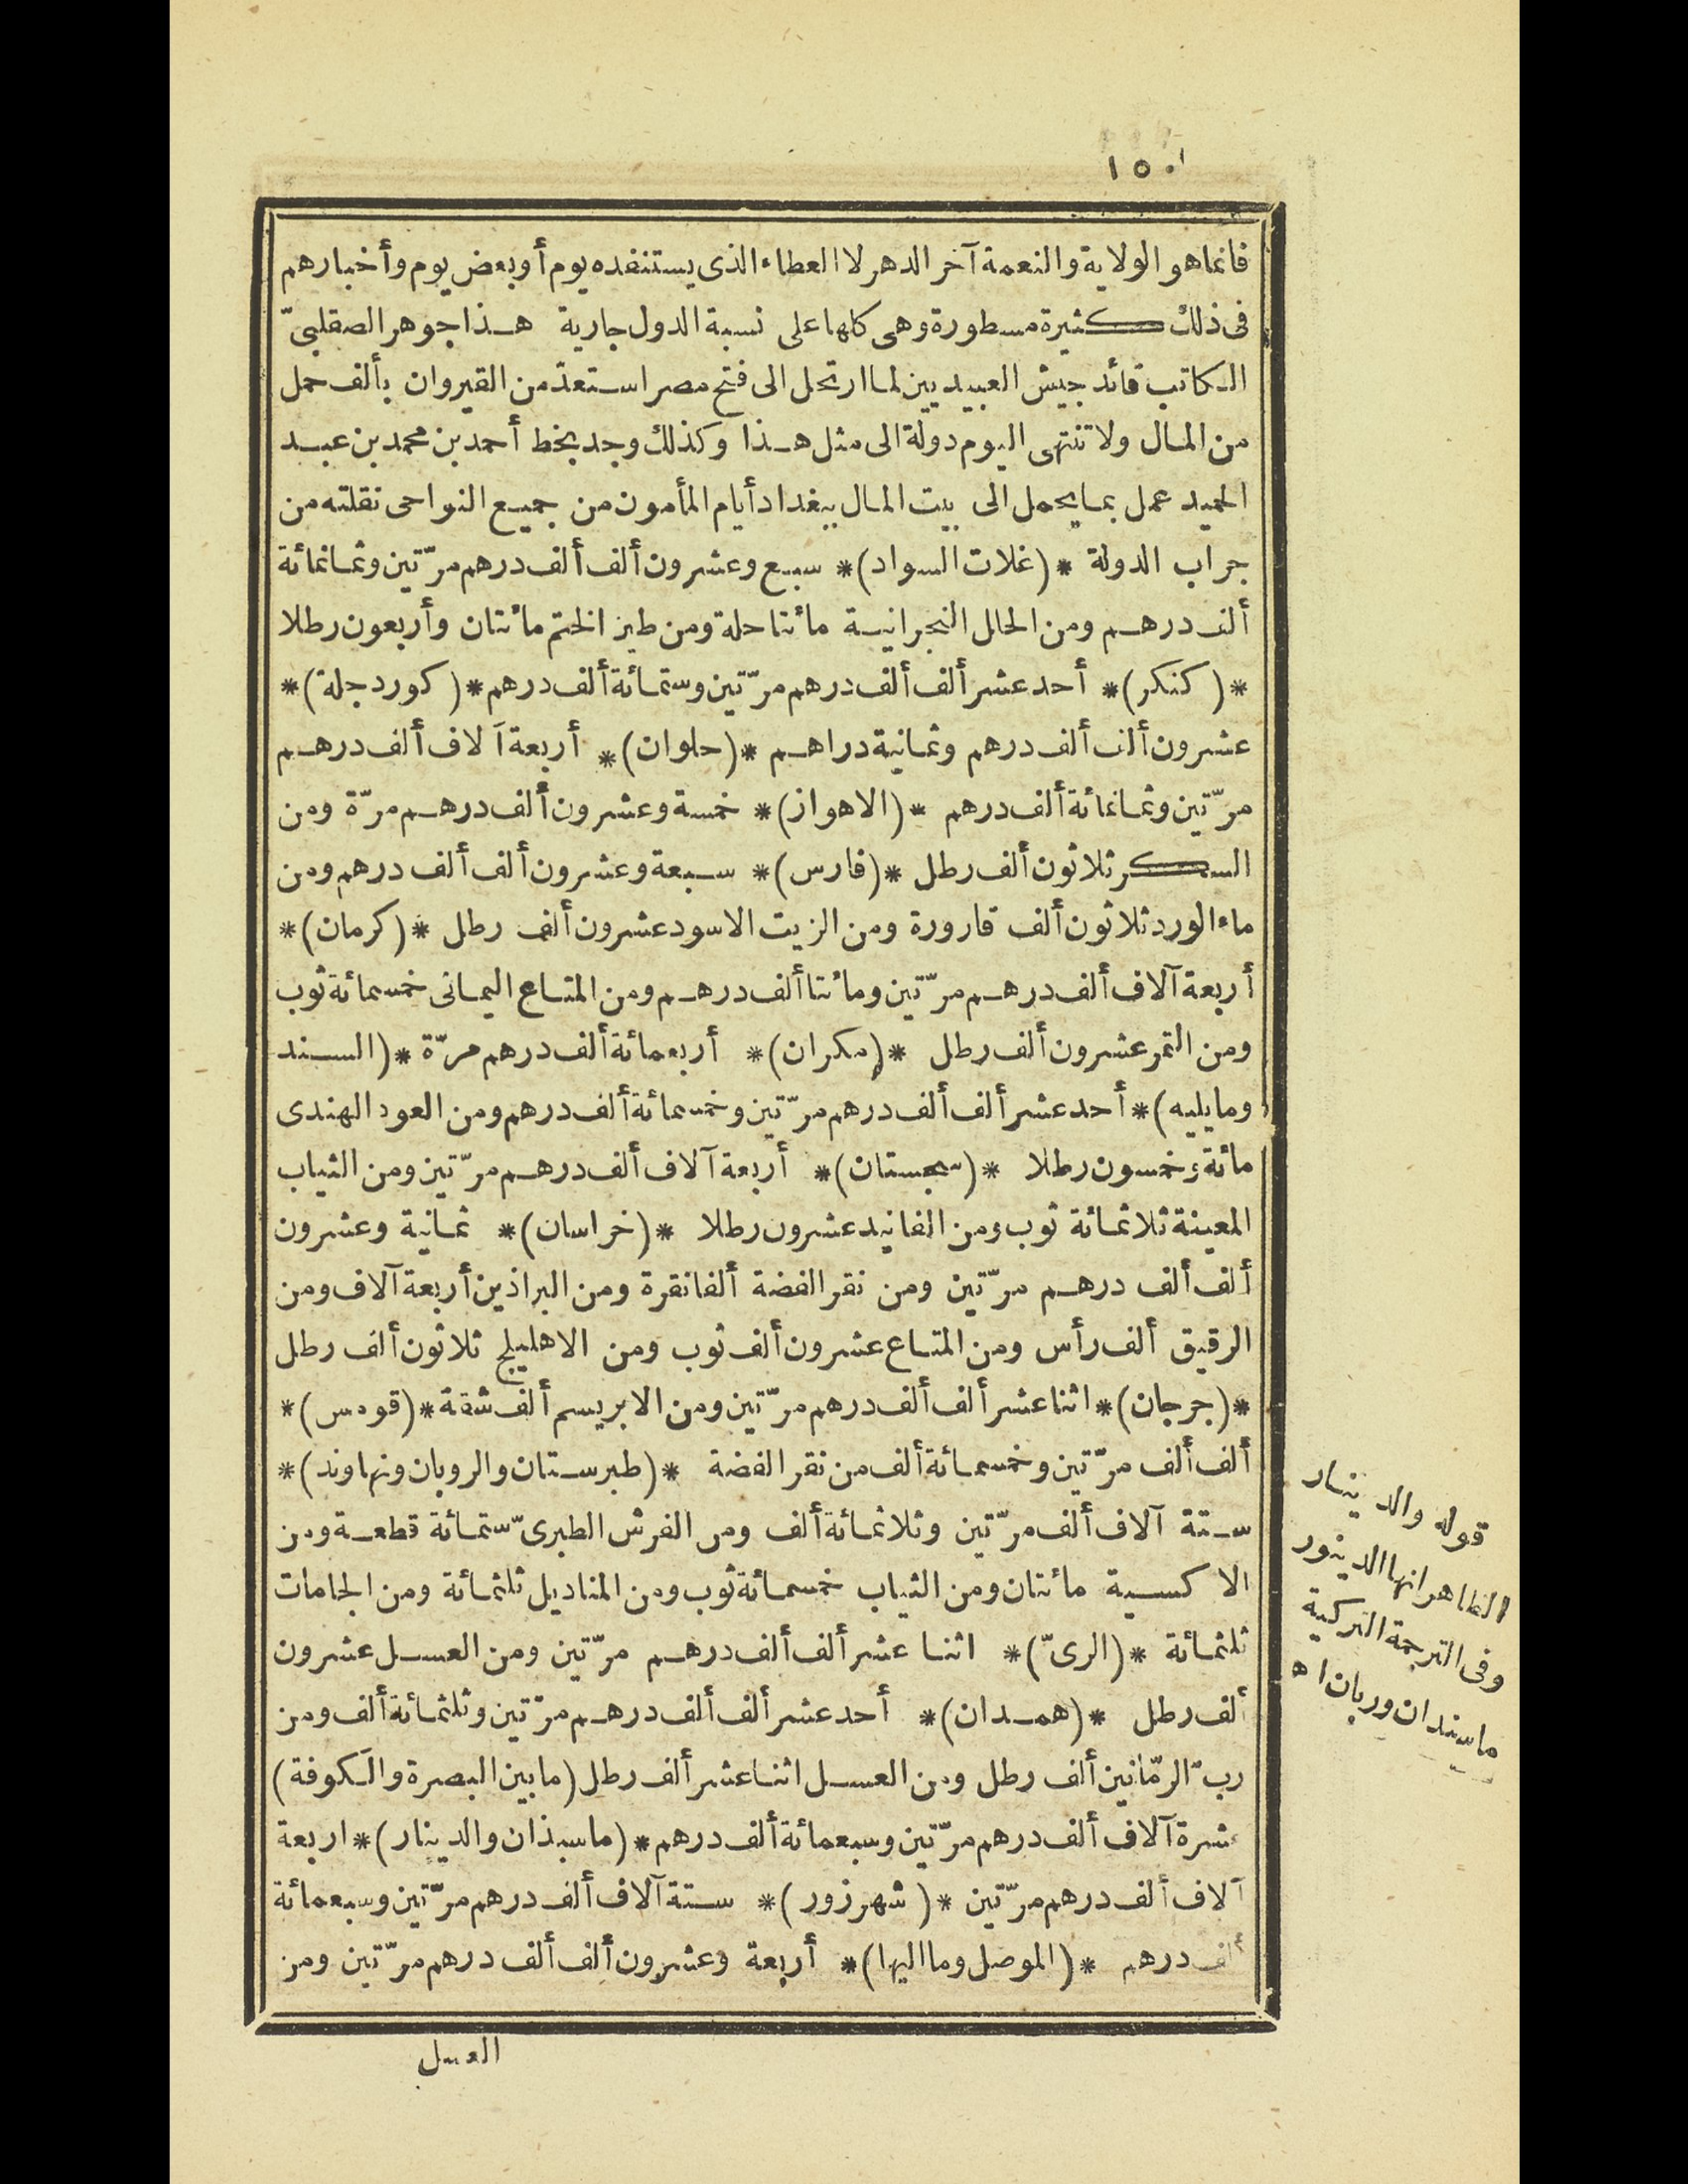 ١٥٠
فانما هو الولاية والنعمة آخر الدهر لا العطاء الذى يستنفده يوم أو بعض يوم وأخبارهم
فى ذلك كثيرة مسطورة وهى كلها على نسبة الدول جارية هذا جوهر الصقلبىّ
الكاتب قائد جيش العبيديين لما ارتحل الى فتح مصر استعدّ من القيروان بألف حمل
من المال ولا تنتهى اليوم دولة الى مثل هذا وكذلك وجد بخط أحمد بن محمد بن عبد
الحميد عمل بما يحمل الى بيت المال ببغداد أيام المأمون من جميع النواحى نقلته من
جراب الدولة * (غلات السواد) * سبع وعشرون ألف ألف درهم مرّتين وثمانمائة
ألف درهم ومن الحلل النجرانية مائتا حلة ومن طين الختم مائتان وأربعون رطلا
* (كنكر) * أحد عشر ألف ألف درهم مرّتين وستمائة ألف درهم * (كوردجلة) *
عشرون ألف ألف درهم وثمانية دراهم * (حلوان) * أربعة آلاف ألف درهم
مرّتين وثمانمائة ألف درهم * (الاهواز) * خمسة وعشرون ألف درهم مرّة ومن
السكر ثلاثون ألف رطل * (فارس) * سبعة وعشرون ألف ألف درهم ومن
ماء الورد ثلاثون ألف قارورة ومن الزيت الاسود عشرون ألف رطل * (كرمان) *
أربعة آلاف ألف درهم مرّتين ومائتا ألف درهم ومن المتاع اليمانى خمسمائة ثوب
ومن التمر عشرون ألف رطل * (مكران) * أربعمائة ألف درهم مرّة * (السند
وما يليه) * أحد عشر ألف ألف درهم مرّتين وخمسمائة ألف درهم ومن العود الهندى
مائة وخمسون رطلا * (سجستان) * أربعة آلاف ألف درهم مرّتين ومن الثياب
المعينة ثلاثمائة ثوب ومن الفانيد عشرون رطلا * (خراسان) * ثمانية وعشرون
ألف ألف درهم مرّتين ومن نقر الفضة ألفا نقرة ومن البراذين أربعة آلاف ومن
الرقيق ألف رأس ومن المتاع عشرون ألف ثوب ومن الاهليلج ثلاثون ألف رطل
* (جرجان) * اثنا عشر ألف ألف درهم مرّتين ومن الابريسم ألف شقة * (قومس) *
ألف ألف مرّتين وخمسمائة ألف من نقر الفضة * (طبرستان والرويان ونهاوند) *
ستة آلاف ألف مرّتين وثلاثمائة ألف ومن الفرش الطبرىّ ستمائة قطعة ومن
الاكسية مائتان ومن الثياب خمسمائة ثوب ومن المناديل ثلثمائة ومن الجامات
ثلثمائة * (الرىّ) * اثنا عشر ألف ألف درهم مرّتين ومن العسل عشرون
ألف رطل * (همدان) * أحد عشر ألف ألف درهم مرّتين وثلثمائة ألف ومن
ربّ الرمّانين ألف رطل ومن العسل اثنا عشر ألف رطل (ما بين البصرة والكوفة)
عشرة آلاف ألف درهم مرّتين وسبعمائة ألف درهم * (ماسبذان والدينار) * اربعة
آلاف ألف درهم مرّتين * (شهرزور) * ستة آلاف ألف درهم مرّتين وسبعمائة
ألف درهم * (الموصل وما اليها) * أربعة وعشرون ألف ألف درهم مرّتين ومن
العسل
قوله والدينار
الظاهر انها الدينور
وفى الترجمة التركية
ماسندان وربان اه